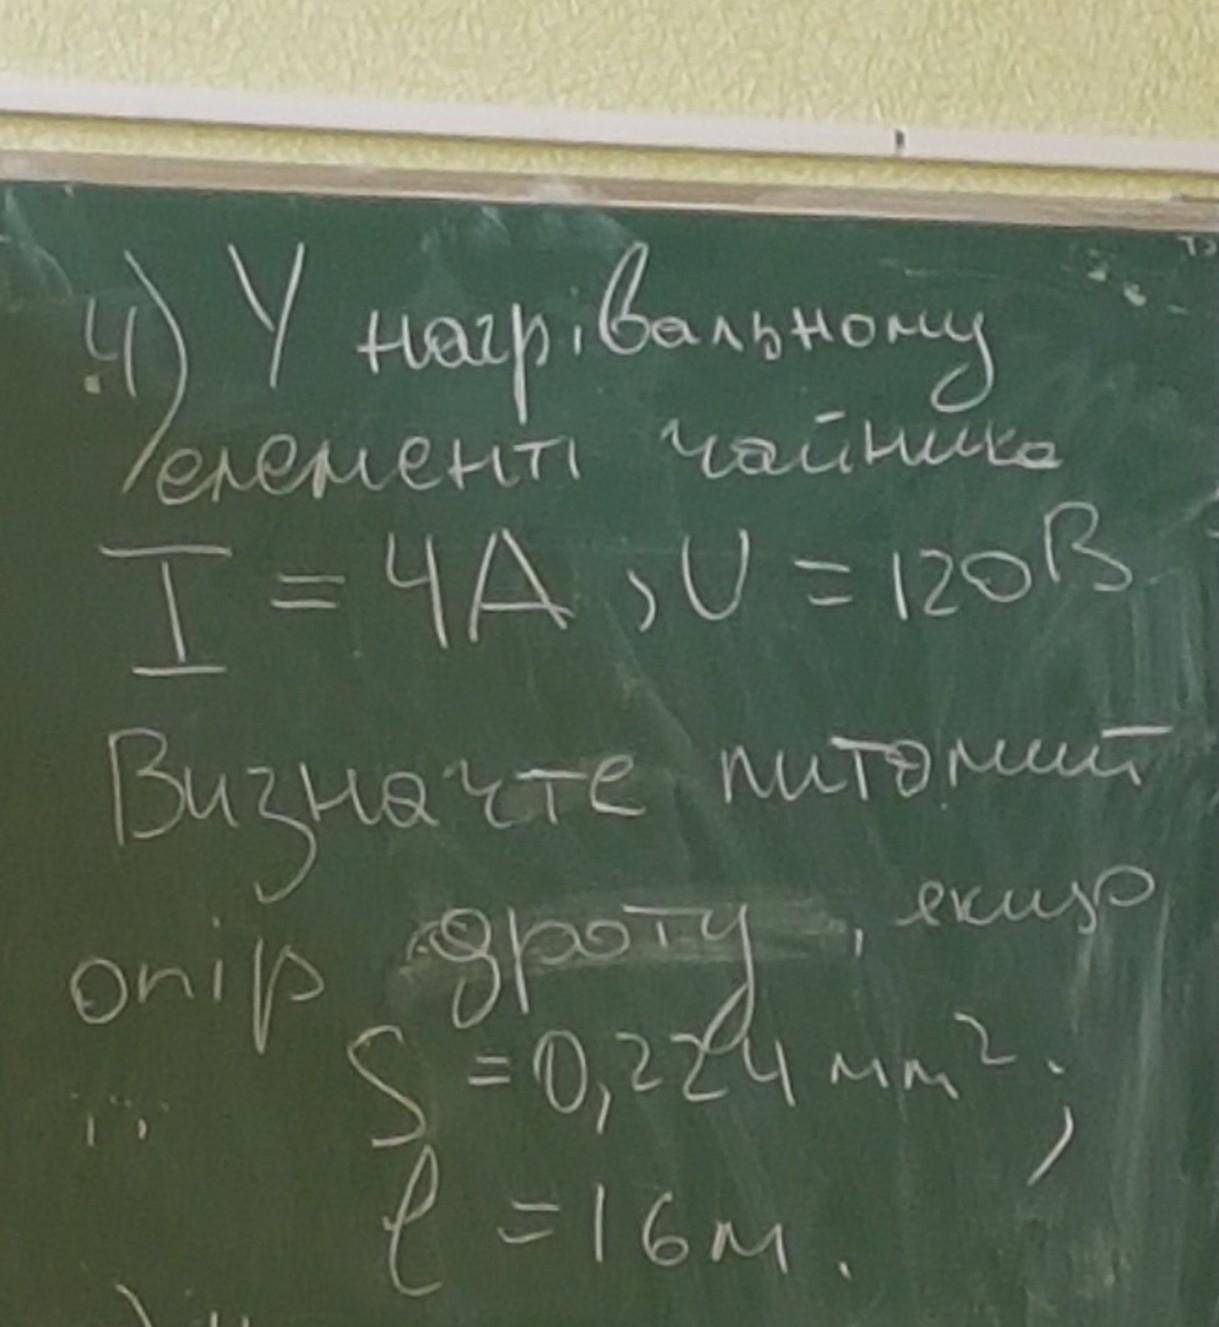 4) У нагрівальному
елементі чайника
I = 4А, U = 120В
Визначте питомий
опір дроту, якщо
S = 0,224 мм²;
l = 16м.